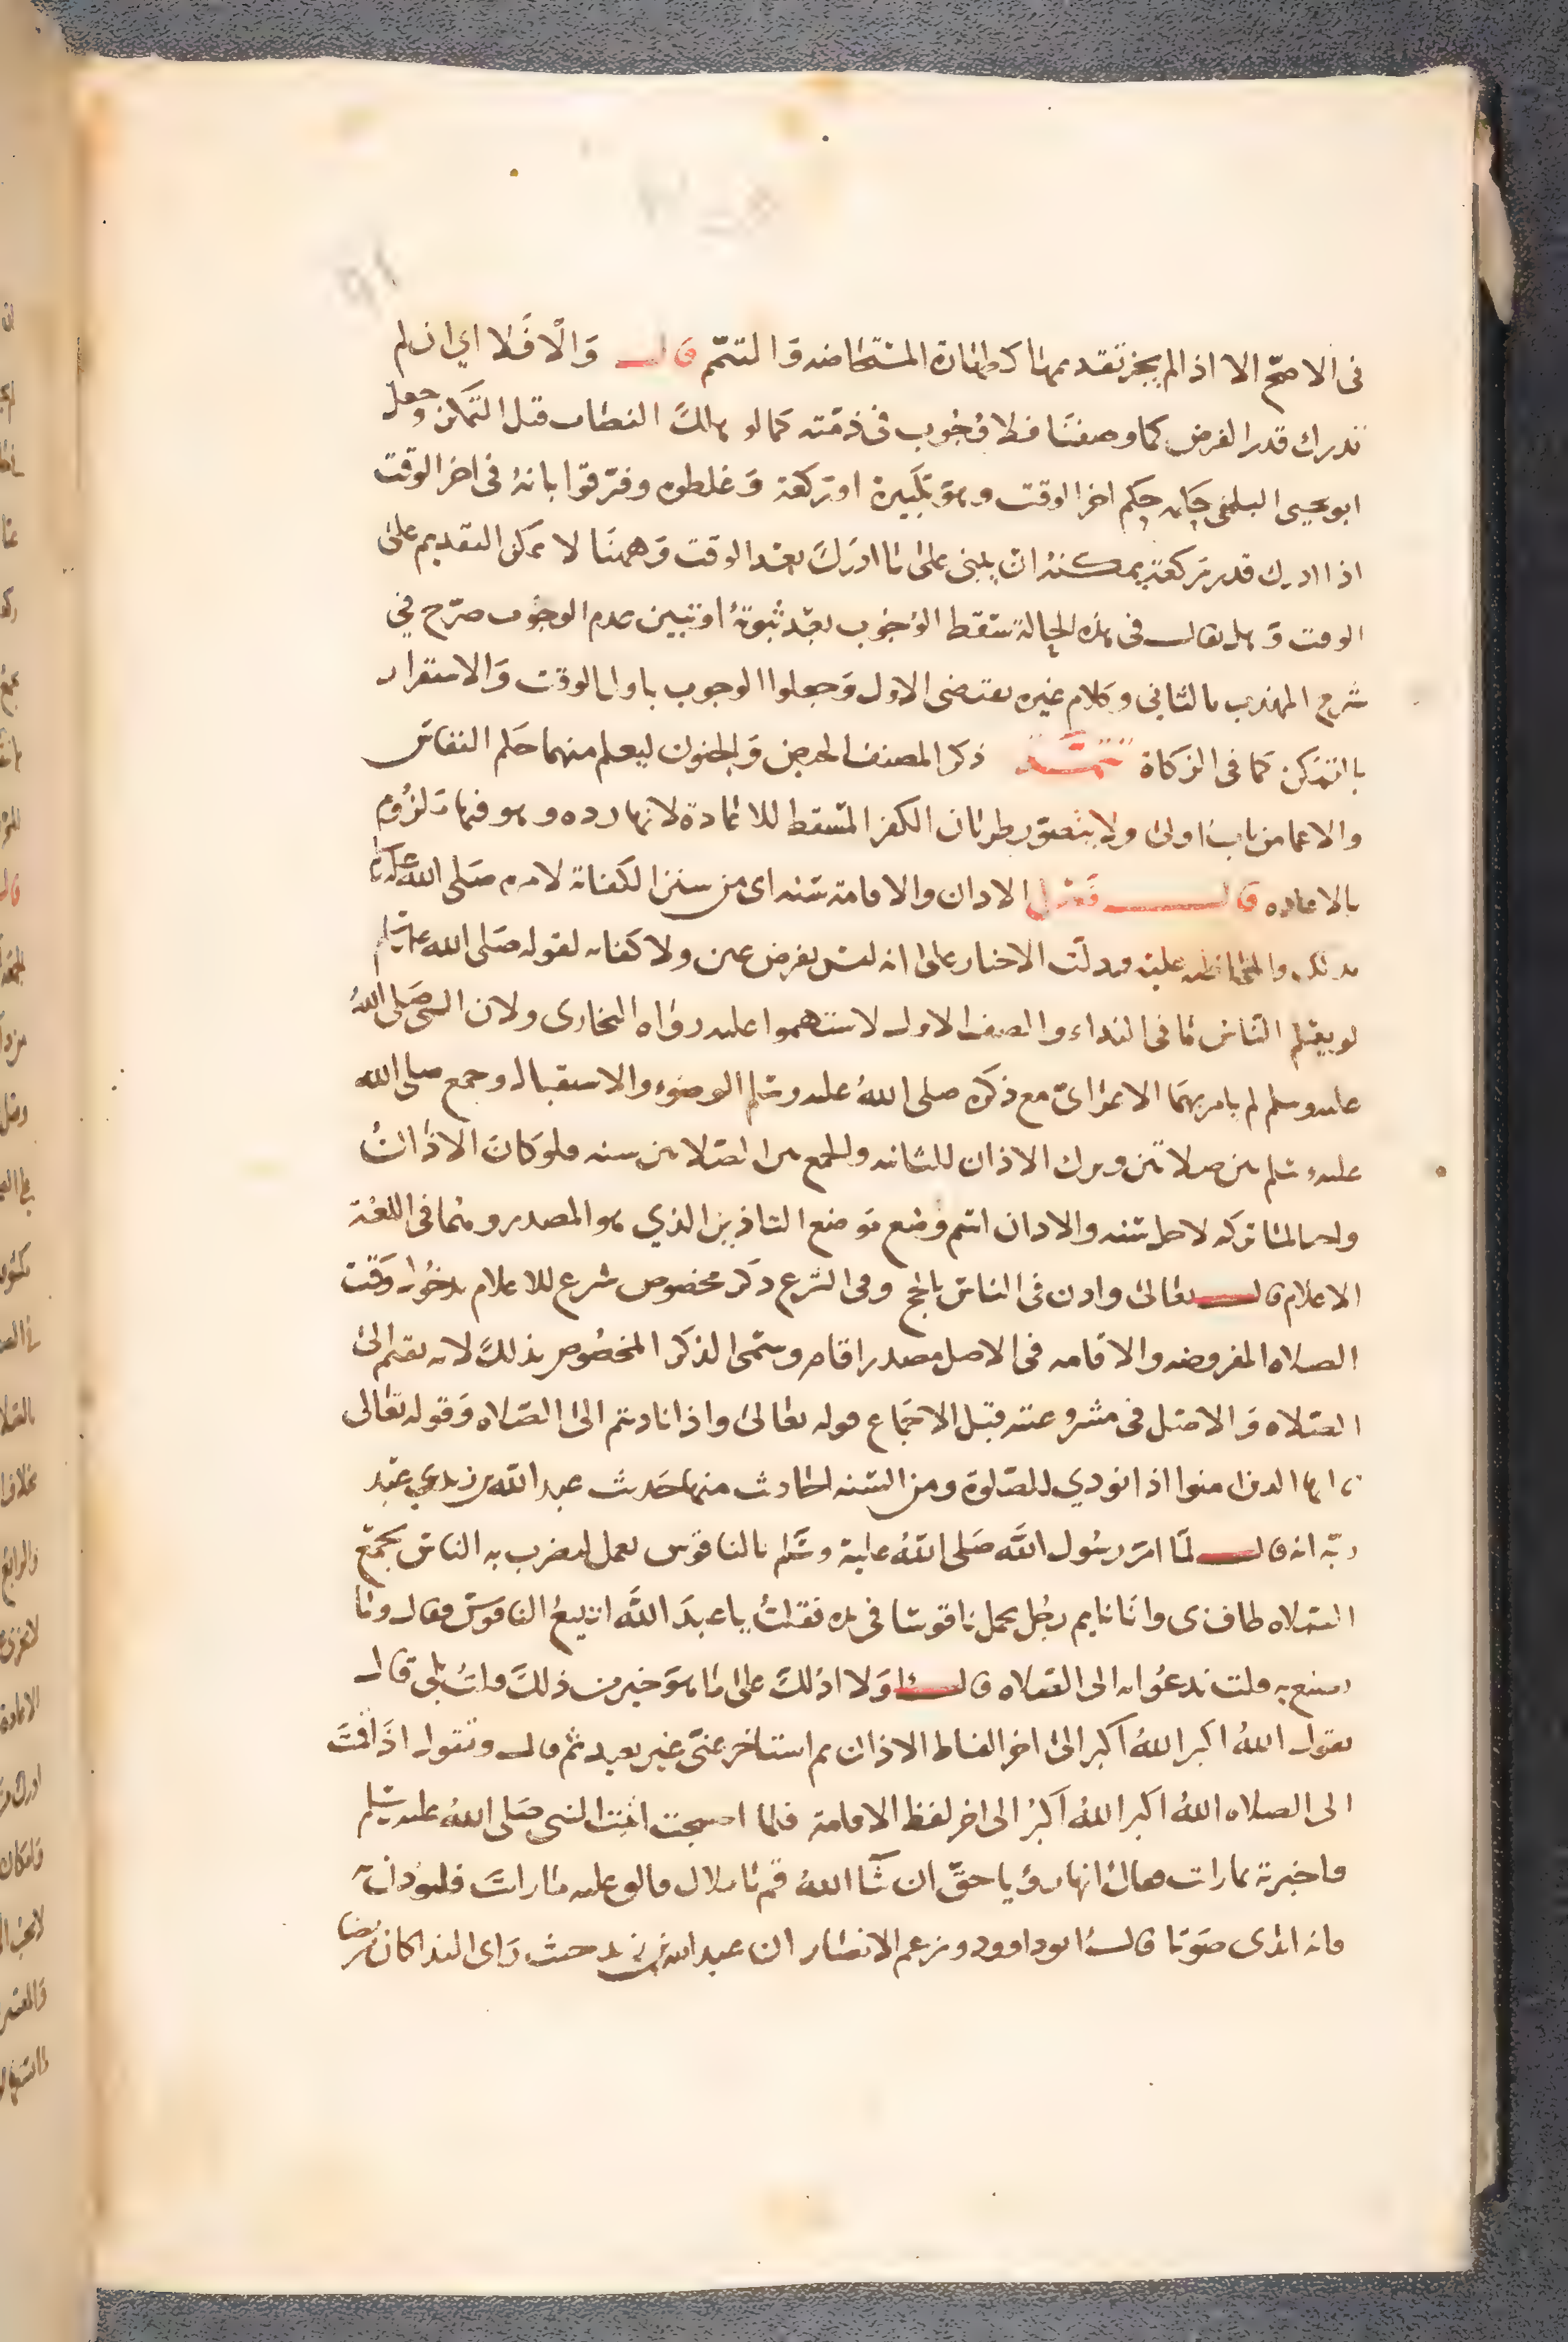 في الاصح الا اذا لم يجز تقديمها كطهارة المستحاضه والتيمم قال والا فلا اي ان لم
تدرك قدر الفرض كما وصفنا فلا وجوب في ذمته كما لو هلك النصاب قبل التمكن وجعل
ابو يحيى البلخي حكم اخر الوقت وهو تكبيرة او ركعة وغلطوه وفرقوا بانه في اخر الوقت
اذا ادرك قدر ركعة يمكنه ان يبني على ما ادرك بعد الوقت وههنا لا يمكن التقديم على
الوقت وهل يقال في هذه الحالة سقط الوجوب بعد ثبوته او تبين عدم الوجوب صرح في
شرح المهذب بالثاني وكلام غيره يقتضي الاول وجعلوا الوجوب باول الوقت والاستقرار
بالتمكن كما في الزكاة تتمة ذكر المصنف الحيض والجنون ليعلم منهما حكم النفاس
والاغما من باب اولى ولا يتصور طريان الكفر المسقط للاعادة لانها رده وهو فيها ملزوم
بالاعاده قال فصل الاذان والاقامة سنه اي من سنن الكفاية لامره صلى الله عليه
بذلك والمحافظه عليه ودلت الاخبار على انه ليس بفرض عين ولا كفايه لقوله صلى الله عليه وسلم
لو يعلم الناس ما في النداء والصف الاول لاستهموا عليه رواه البخاري ولان النبي صلى الله
عليه وسلم لم يامر بهما الاعرابي مع ذكره صلى الله عليه وسلم الوضوء والاستقبال وجمع صلى الله
عليه وسلم بين صلاتين وترك الاذان للثانيه والجمع بين الصلاتين سنه فلو كان الاذان
واجبا لما تركه لاجل سنه والاذان اسم وضع موضع التاذين الذي هو المصدر وهما في اللغة
الاعلام قال تعالى واذن في الناس بالحج وفي الشرع ذكر مخصوص شرع للاعلام بدخول وقت
الصلاه المفروضه والاقامه في الاصل مصدر اقام وسمي الذكر المخصوص بذلك لانه يقيم الى
الصلاه والاصل في مشروعيته قبل الاجماع قوله تعالى واذا ناديتم الى الصلاه وقوله تعالى
يا ايها الذين امنوا اذا نودي للصلوة ومن السنه احاديث منها حديث عبد الله بن زيد بن عبد
ربه انه قال لما امر رسول الله صلى الله عليه وسلم بالناقوس يعمل ليضرب به الناس بجمع
الصلاه طاف بي وانا نايم رجل يحمل ناقوسا في يده فقلت يا عبد الله اتبيع الناقوس فقال وما
تصنع به قلت ندعوا به الى الصلاه قال اولا ادلك على ما هو خير من ذلك قلت بلى قال
تقول الله اكبر الله اكبر الى اخر الفاظ الاذان ثم استاخر عني غير بعيد ثم قال وتقول اذا اقمت
الى الصلاه الله اكبر الله اكبر الى اخر لفظ الاقامة فلما اصبحت اتيت النبي صلى الله عليه وسلم
فاخبرته بما رايت فقال انها رؤيا حق ان شا الله قم يا بلال فالق عليه ما رايت فليؤذن به
فانه اندى صوتا قال ابو داوود وتزعم الانصار ان عبد الله بن زيد حيث راى الندا كان مريضا